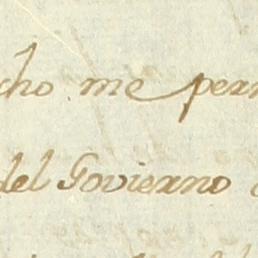 cho me perm
del Govierno